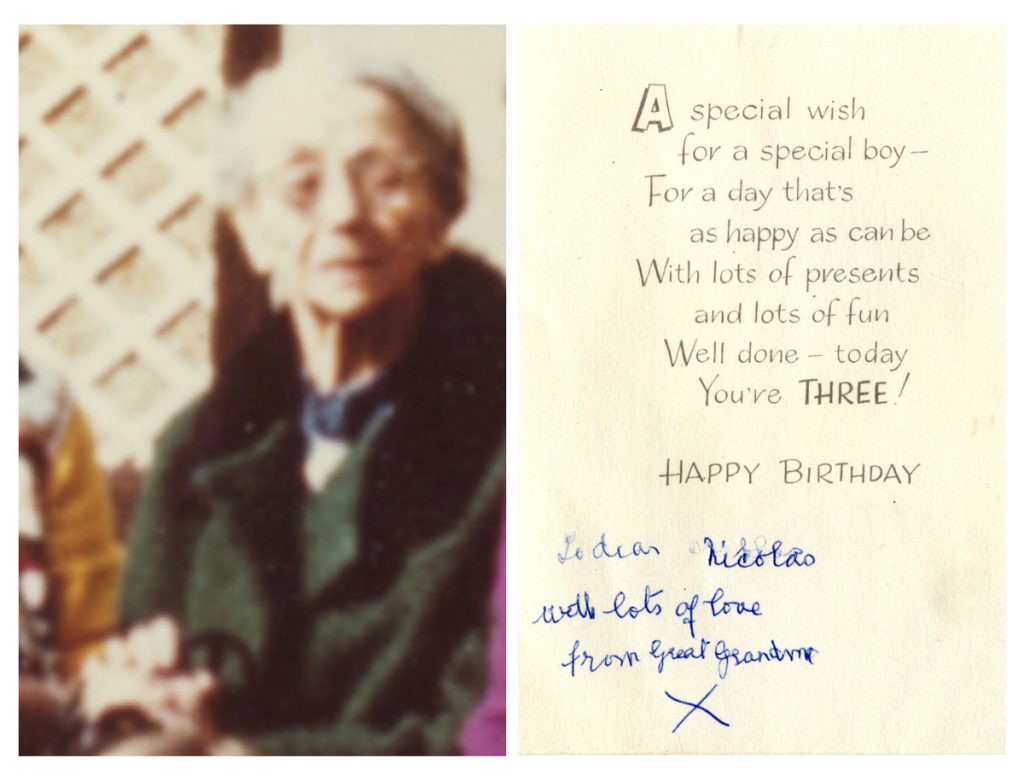 A special wish
for a special boy –
For a day that's
as happy as can be
With lots of presents
and lots of fun
Well done – today
You're THREE!
HAPPY BIRTHDAY
To dear Nicolas
with lots of love
from Great Grandma
X